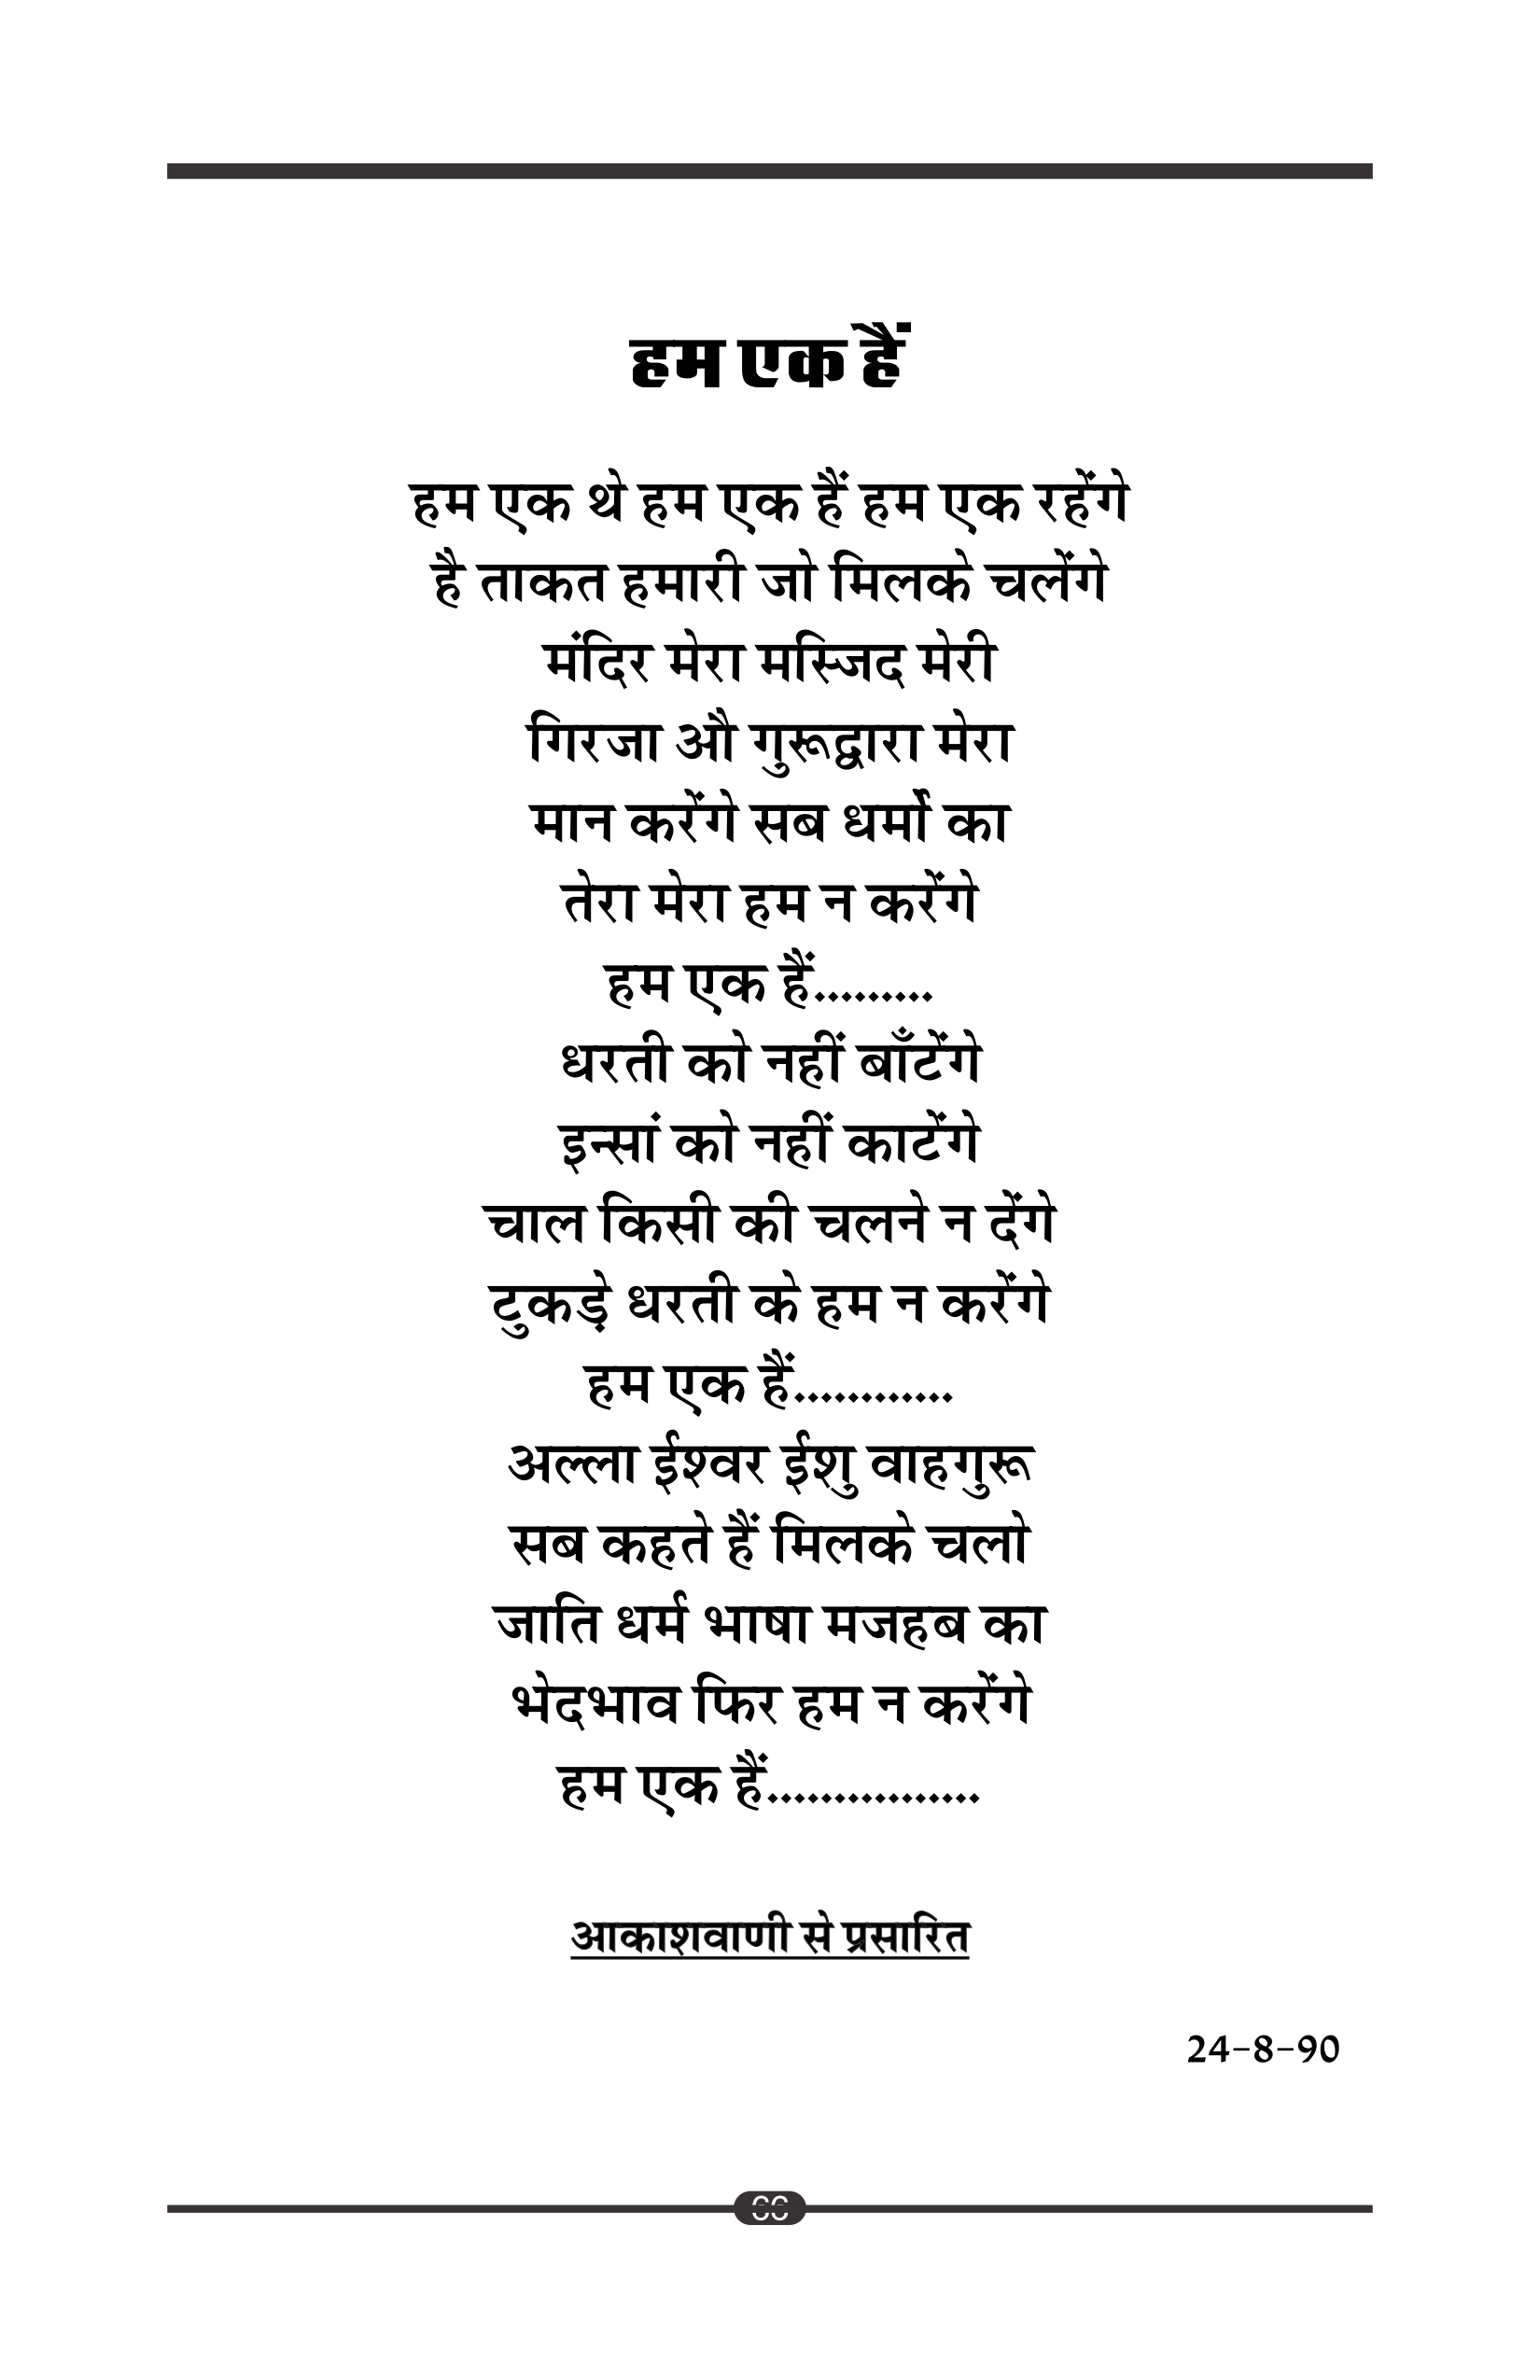 हम एक हैं
हम एक थे हम एक हैं हम एक रहेंगे
है ताकत हमारी जो मिलके चलेंगे
मंदिर मेरा मस्जिद मेरी
गिरजा औ गुरूद्वारा मेरा
मान करेंगे सब धर्मो का
तेरा मेरा हम न करेंगे
हम एक हैं.........
धरती को नहीं बाँटेंगे
इन्सां को नहीं काटेंगे
चाल किसी की चलने न देंगे
टुकड़े धरती के हम न करेंगे
हम एक हैं............
अल्ला ईश्वर ईशु वाहगुरू
सब कहते हैं मिलके चलो
जाति धर्म भाषा मजहब का
भेदभाव फिर हम न करेंगे
हम एक हैं................
आकाशवाणी से प्रसारित
24-8-90